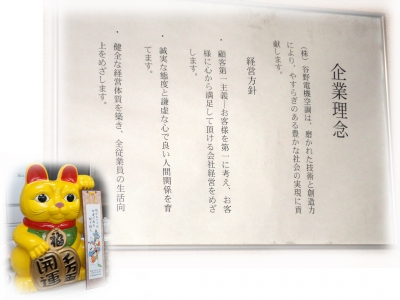 企業理念
（株）谷野電機空調は、磨かれた技術と創造力
により、やすらぎのある豊かな社会の実現に貢
献します。
経営方針
・顧客第一主義―お客様を第一に考え、お客
様に心から満足して頂ける会社経営をめざ
します。
・誠実な態度と謙虚な心で良い人間関係を育
てます。
・健全な経営体質を築き、全従業員の生活向
上をめざします。
福
開運